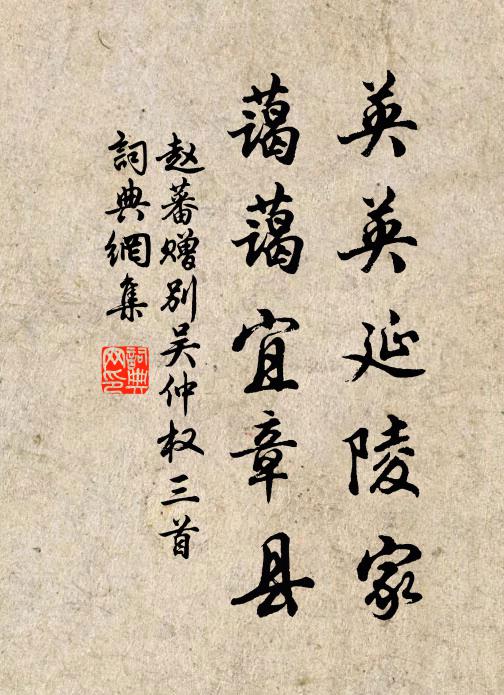 英英延陵家
藹藹宜章县
赵蕃赠别吴仲权三首
詞典網集
詞典网印